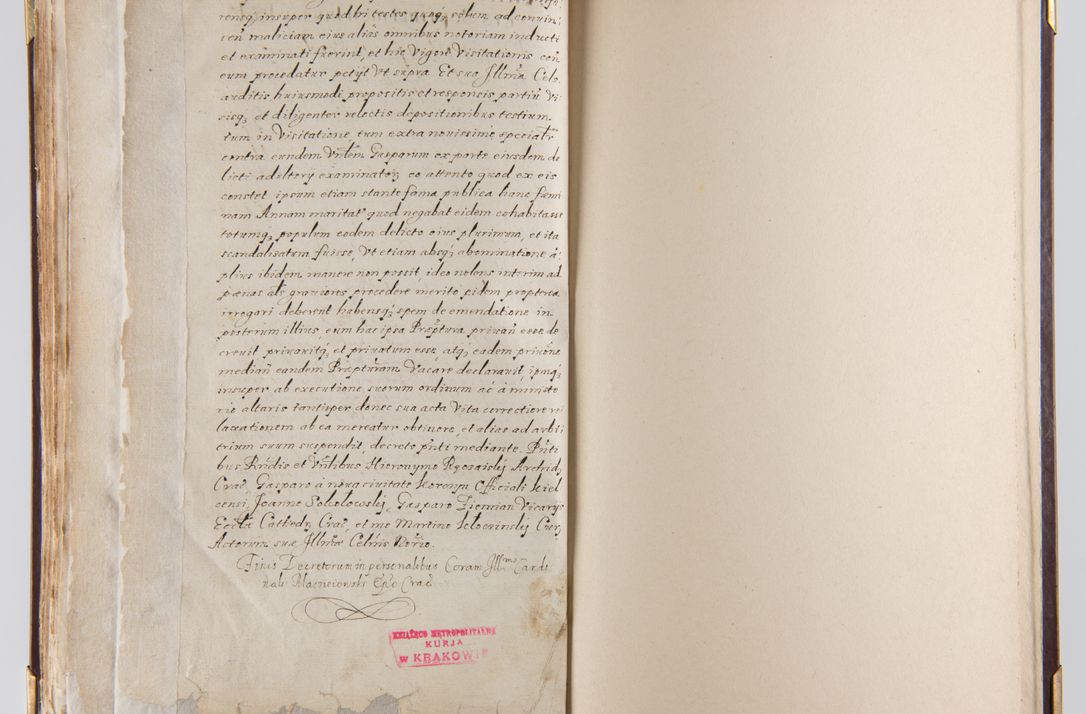 rensq; insuper quod hi testes quoq; eorum ad convin:
cen maliciam eius alias omnibus notoriam inducti
et examinati fuerint, et hic Vigore Visitationis con
eum procedatur petyt Vt supra. Et sua Jllma Cels.
auditis huiusmodi propositis et responsis partiu Vt
risq; et diligenter relectis depositionibus testium
tum in Visitatione tum extra nouissime specialr
contra eundem Vnlem Gasparum ex parte eiusdem de
licti adultery examinator; eo attento quod ex eis
constet ipsum etiam stante fama publica hanc fœmi
nam Annam maritat quod negabat eidem cohabitasse
totumq; populum eodem delicto eius plurimum, et ita
scandalisatum fuisse, Vt etiam absq; abominatione a
plius ibidem manere non possit, ideo nolens interim ad
pœnas als grauiores procedere merito eidem propterea
irrogari deberent habensq; spem de emendatione in
posterum illius, eum hac ipsa Præptura priuan esse de
creuit priuauitq; et priuatum esse atq; eadem priuone
median eandem Præpturam Vacare declarauit ipmq;
insuper ab executione suorum ordinum ac à ministe
rio altaris tantisper donec sua acta Vita correctiore re
laxationem ab ea mereatur obtinere, et alias ad arbi:
trium suum suspendit, decreto pnti mediante. Pnti
bus Rndis et Vnlibus Hieronymo Rgozaiskj Archid;
Crac. Gasparo à noua ciuitate Korcryn Officiali Kiel
censi, Joanne Sokołowskj, Gasparo Zioman Vicarys
Eccla Cathedr; Crac, et me Martino Kłoczinskj Cur;
Actorum suæ Jllmæ Celnis Norio.
Finis Decretorum in personalibus Coram Jll.mo Cardi
nali Macieiowski Epo Crac
KSIĄŻĘCO METROPOLITALNA
KURJA
W KRAKOWIE